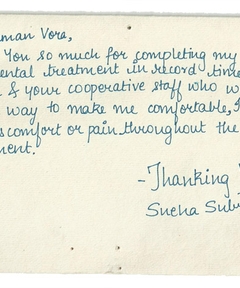 man Vora,
You so much for completing my
ental treatment in record time
& your cooperative staff who w
way to make me comfortable, I
scomfort or pain throughout the
ment.
-Thanking
Sneha Sub